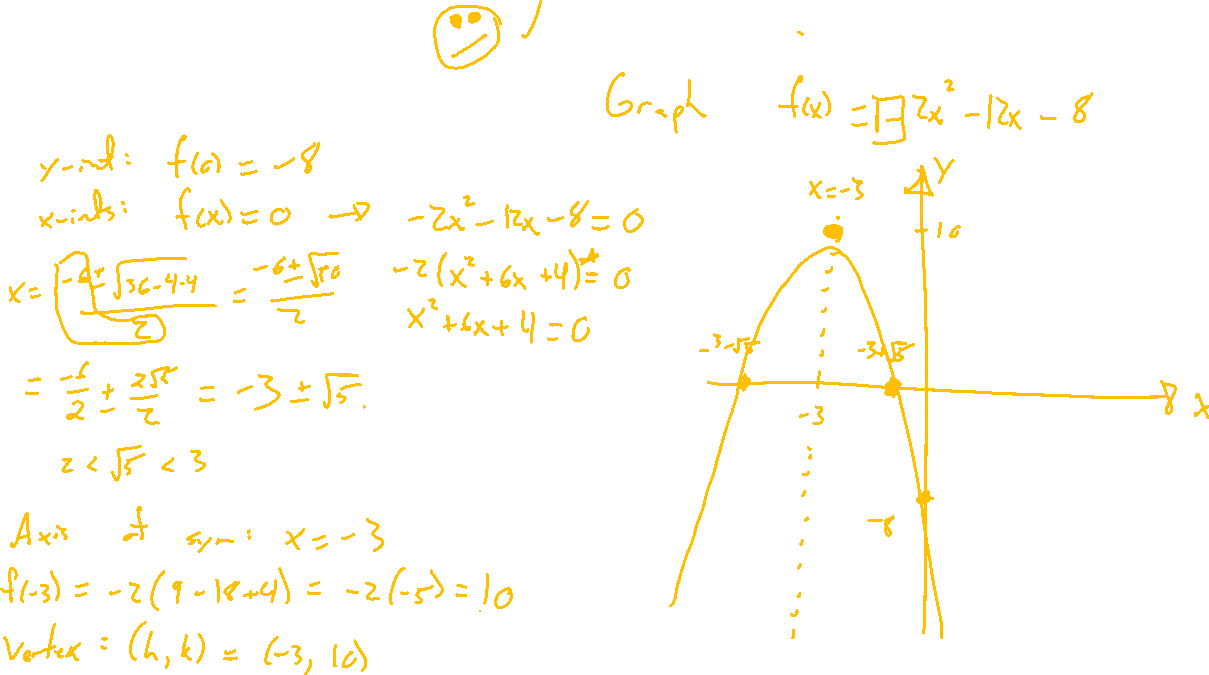 Graph f(x) = -2x² - 12x - 8
y-int: f(0) = -8
x-ints: f(x) = 0 → -2x² - 12x - 8 = 0
-2(x² + 6x + 4) = 0
x² + 6x + 4 = 0
x = (-6 ± √(36-4·4))/2 = (-6 ± √20)/2
= -6/2 ± 2√5/2 = -3 ± √5.
2 < √5 < 3
Axis of sym: x = -3
f(-3) = -2(9 - 18 + 4) = -2(-5) = 10
Vertex = (h, k) = (-3, 10)
y
x = -3
10
-3-√5
-3+√5
x
-3
-8